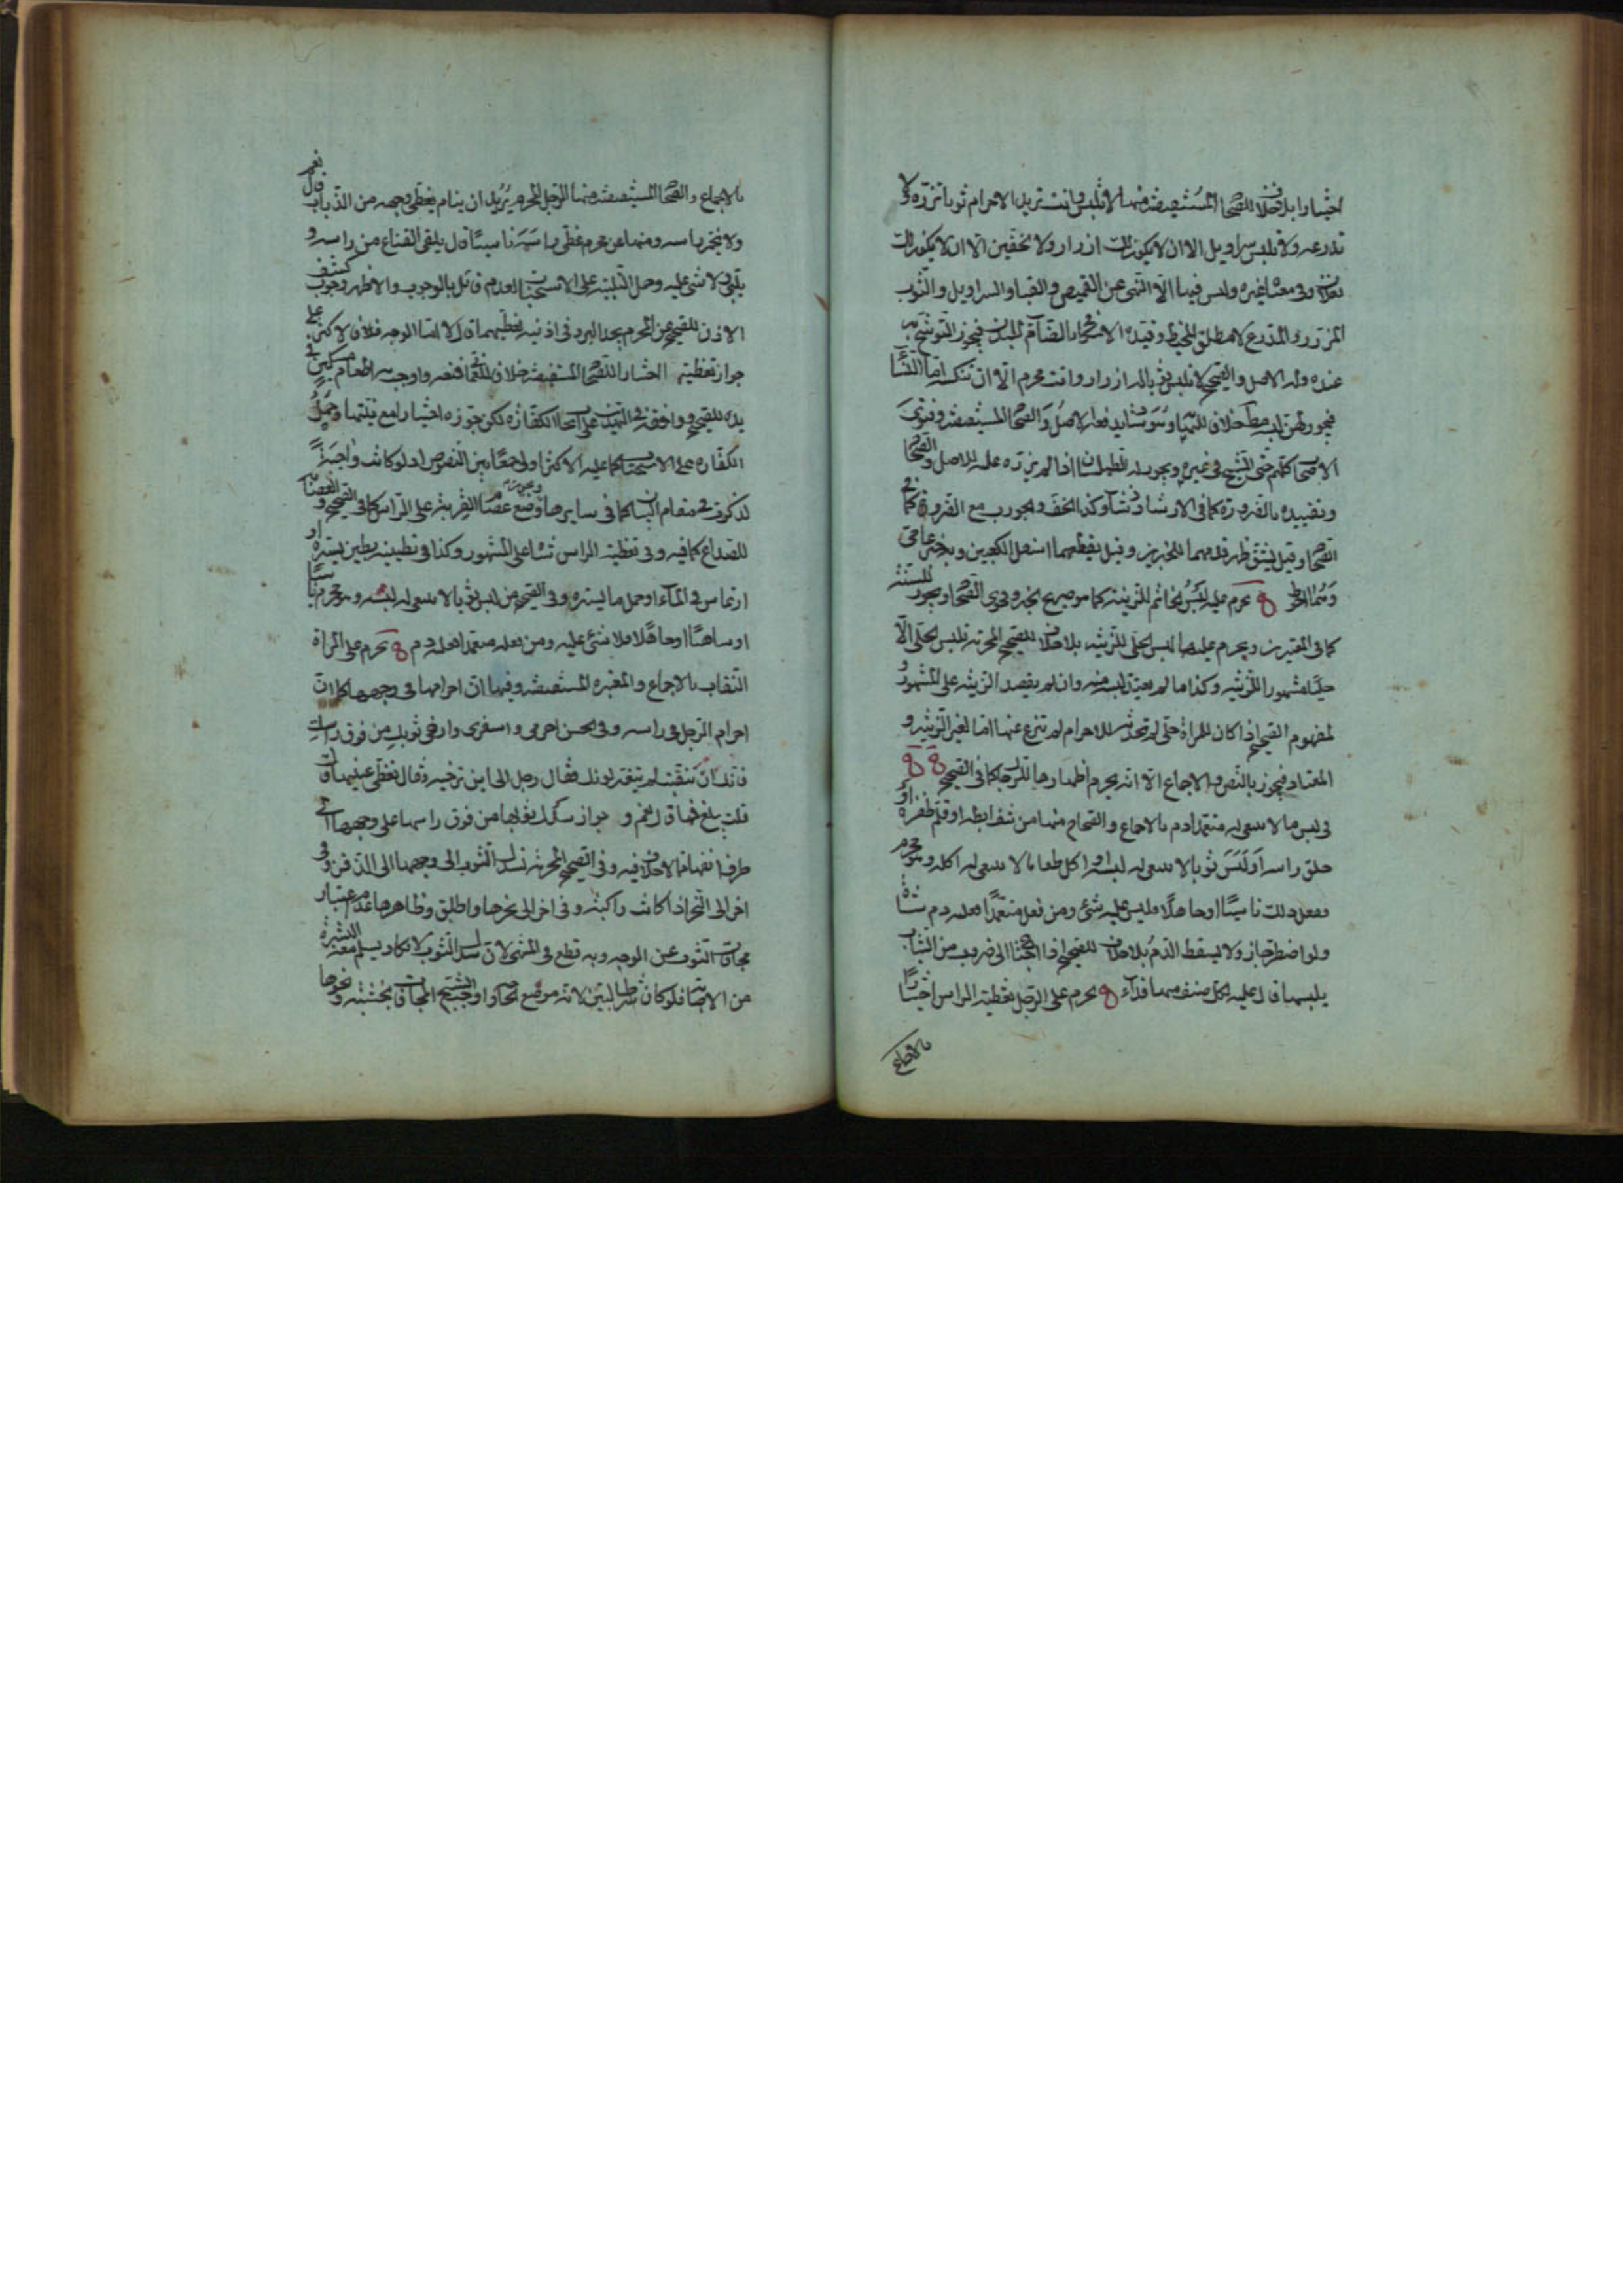 اختيارا بلا خلاف للصحاح المستفيضة منها لا تلبس وانت تريد الاحرام ثوبا تزره ولا
تدرعه ولا تلبس سراويل الا ان لا يكون لك ازار ولا خفين الا ان لا يكون لك
نعلان وفي معناه غيره وليس فيها الا النهي عن القميص والقبا والسراويل والثوب
المزرر والمدرع لا مطلق المخيط وقيده الاسكافي بالضام للبدن فيجوز التوشح به
عنده وله الاصل والصحيح لا تلبس ثوبا له ازرار وانت محرم الا ان تنكسه اما النساء
فيجوز لهن لبسه مط خلافا للنهاية وهو شاذ يدفعه الاصل والصحاح المستفيضة وفتوى
الاصحاب كلهم حتى الشيخ في غيره ويجوز له الطيلسان اذا لم يزره عليه للاصل والصحاح
وتقييده بالضرورة كما في الارشاد شاذ وكذا الخف والجورب مع الضرورة كما في
الصحاح وقيل يشق ظهر قدمهما للخبرين وقيل يقطعهما اسفل الكعبين وبه خبر عامي
وهما احوط يحرم عليه لبس الخاتم للزينة كما هو صريح الخبر وفحوى الصحاح ويجوز للسنة
كما في المعتبرين ويحرم عليها لبس الحلي للزينة بلا خلاف للصحيح المحرمة تلبس الحلي الا
حليا مشهورا للزينة وكذا ما لم يعتد لبسه منه وان لم يقصد الزينة على المشهور و
لمفهوم الصحيح اذا كان للمراة حلي لم تحدثه للاحرام لم تنزع عنها اما لغير الزينة و
المعتاد فيجوز بالنص والاجماع الا انه يحرم اظهارها للرجال كما في الصحيح
في لبس ما لا ينبغي له متعمدا دم بالاجماع والصحاح منها من نتف ابطه او قلم ظفره او
حلق راسه او لبس ثوبا لا ينبغي له لبسه او اكل طعاما لا ينبغي له اكله وهو محرم
ففعل ذلك ناسيا او جاهلا فليس عليه شئ ومن فعله متعمدا فعليه دم شاة
ولو اضطر جاز ولا يسقط الدم بلا خلاف للصحيح اذا احتاج الى ضروب من الثياب
يلبسها قال عليه لكل صنف منها فداء يحرم على الرجل تغطية الراس اختيارا
بالاجماع
بالاجماع والصحاح المستفيضة منها الرجل المحرم يريد ان ينام يغطي وجهه من الذباب قال نعم
ولا يخمر راسه ومنها عن محرم غطى راسه ناسيا قال يلقى القناع عن راسه و
يلبي لا شئ عليه وحمل التلبية على الاستحباب لعدم قائل بالوجوب والاظهر وجوب كشف
الاذن للصحيح عن المحرم يجد البرد في اذنيه يغطيهما قال لا اما الوجه فلان الاكثر على
جواز تغطيته اختيارا للصحاح المستفيضة خلافا للعماني فنعه واوجب به اطعام مسكين في
يده للصحيح ووافقه في التهذيب على ايجاب الكفارة لكن جوزه اختيارا مع نيتها وحمل
الكفارة على الاستحباب كما عليه الاكثر اولى جمعا بين النصوص اذ لو كانت واجبة
لذكرت في مقام البيان كما في سايرها ويجوز له وضع عصام القربة على الراس كما في الصحيح والعصابة
للصداع كما فيه وفي تغطية الراس شاة على المشهور وكذا في تطيينه بطين يستره او
ارتماس في الماء او حمل ما يستره وفي الصحيح من لبس ثوبا لا ينبغي له لبسه وهو محرم ناسيا
او ساهيا او جاهلا فلا شئ عليه ومن فعله متعمدا فعليه دم يحرم على المراة
النقاب بالاجماع والمعتبرة المستفيضة وفيها ان احرامها في وجهها كما ان
احرام الرجل في راسه وفي الحسن احرمي واسفري وارخي ثوبك من فوق راسك
فانك ان تنقبت لم يتغير لونك فقال رجل الى اين ترخيه فقال تغطي عينيها قال
قلت يبلغ فمها قال نعم و جواز سدل قناعها من فوق راسها على وجهها الى
طرف انفها مما لا خلاف فيه وفي الصحيح المحرمة تسدل الثوب الى وجهها الى الذقن وفي
اخر الى النحر اذا كانت راكبة وفي اخر الى نحرها واطلق وظاهرها عدم اعتبار
مجافات الثوب عن الوجه وبه قطع في المنتهى لان سدل الثوب لا يكاد يسلم معه البشرة
من الاصابة فلو كان شرطا لبين لانه موضع الحاجة واوجب الشيخ المجافات بخشبة ونحوها